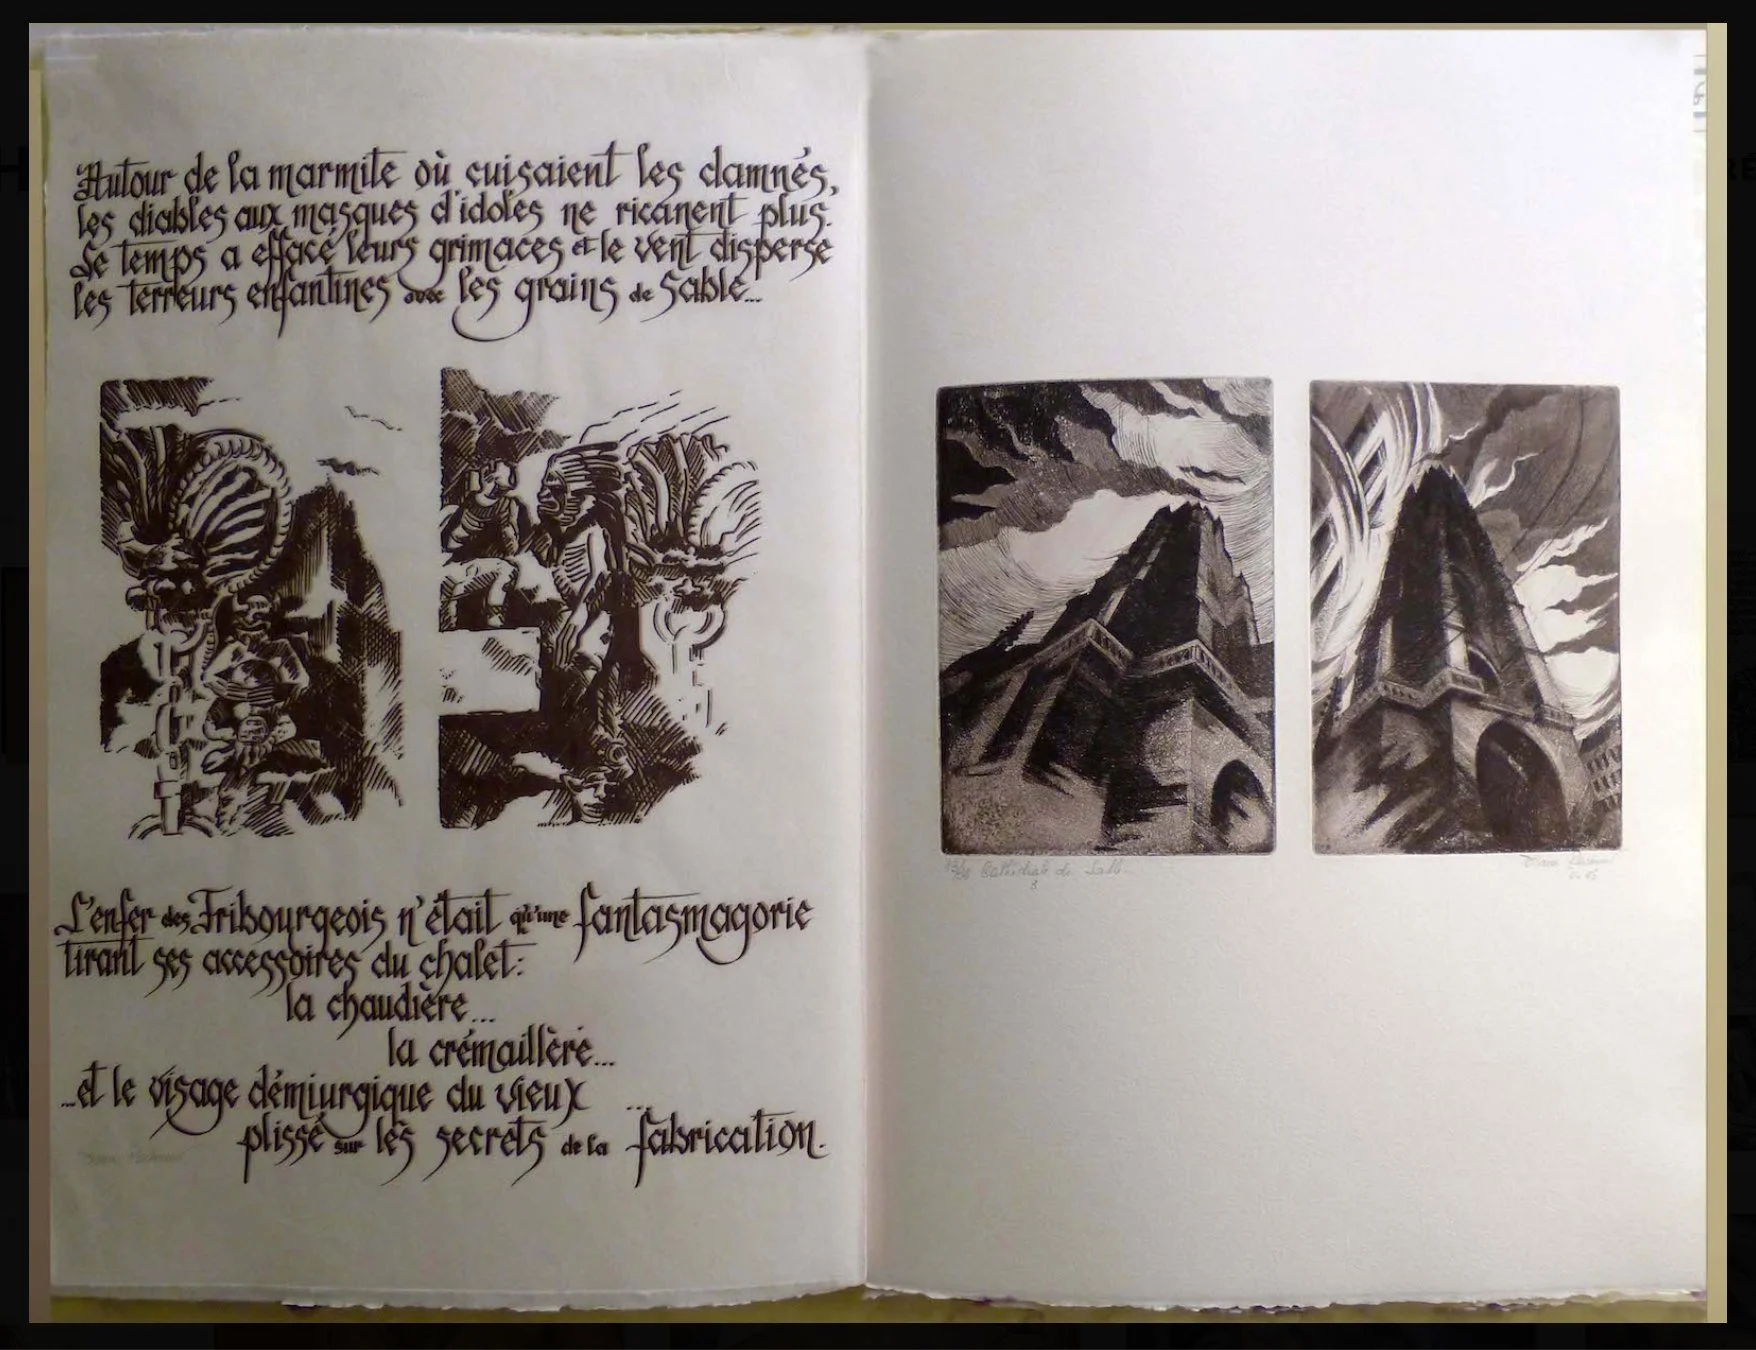 Autour de la marmite où cuisaient les damnés,
les diables aux masques d'idoles ne ricanent plus.
Le temps a effacé leurs grimaces et le vent disperse
les terreurs enfantines avec les grains de Sable...
L'enfer des Fribourgeois n'était qu'une fantasmagorie
tirant ses accessoires du chalet:
la chaudière...
la crémaillère...
...et le visage démiurgique du vieux ...
plissé sur les secrets de la fabrication.
Cathédrale de Sable
8